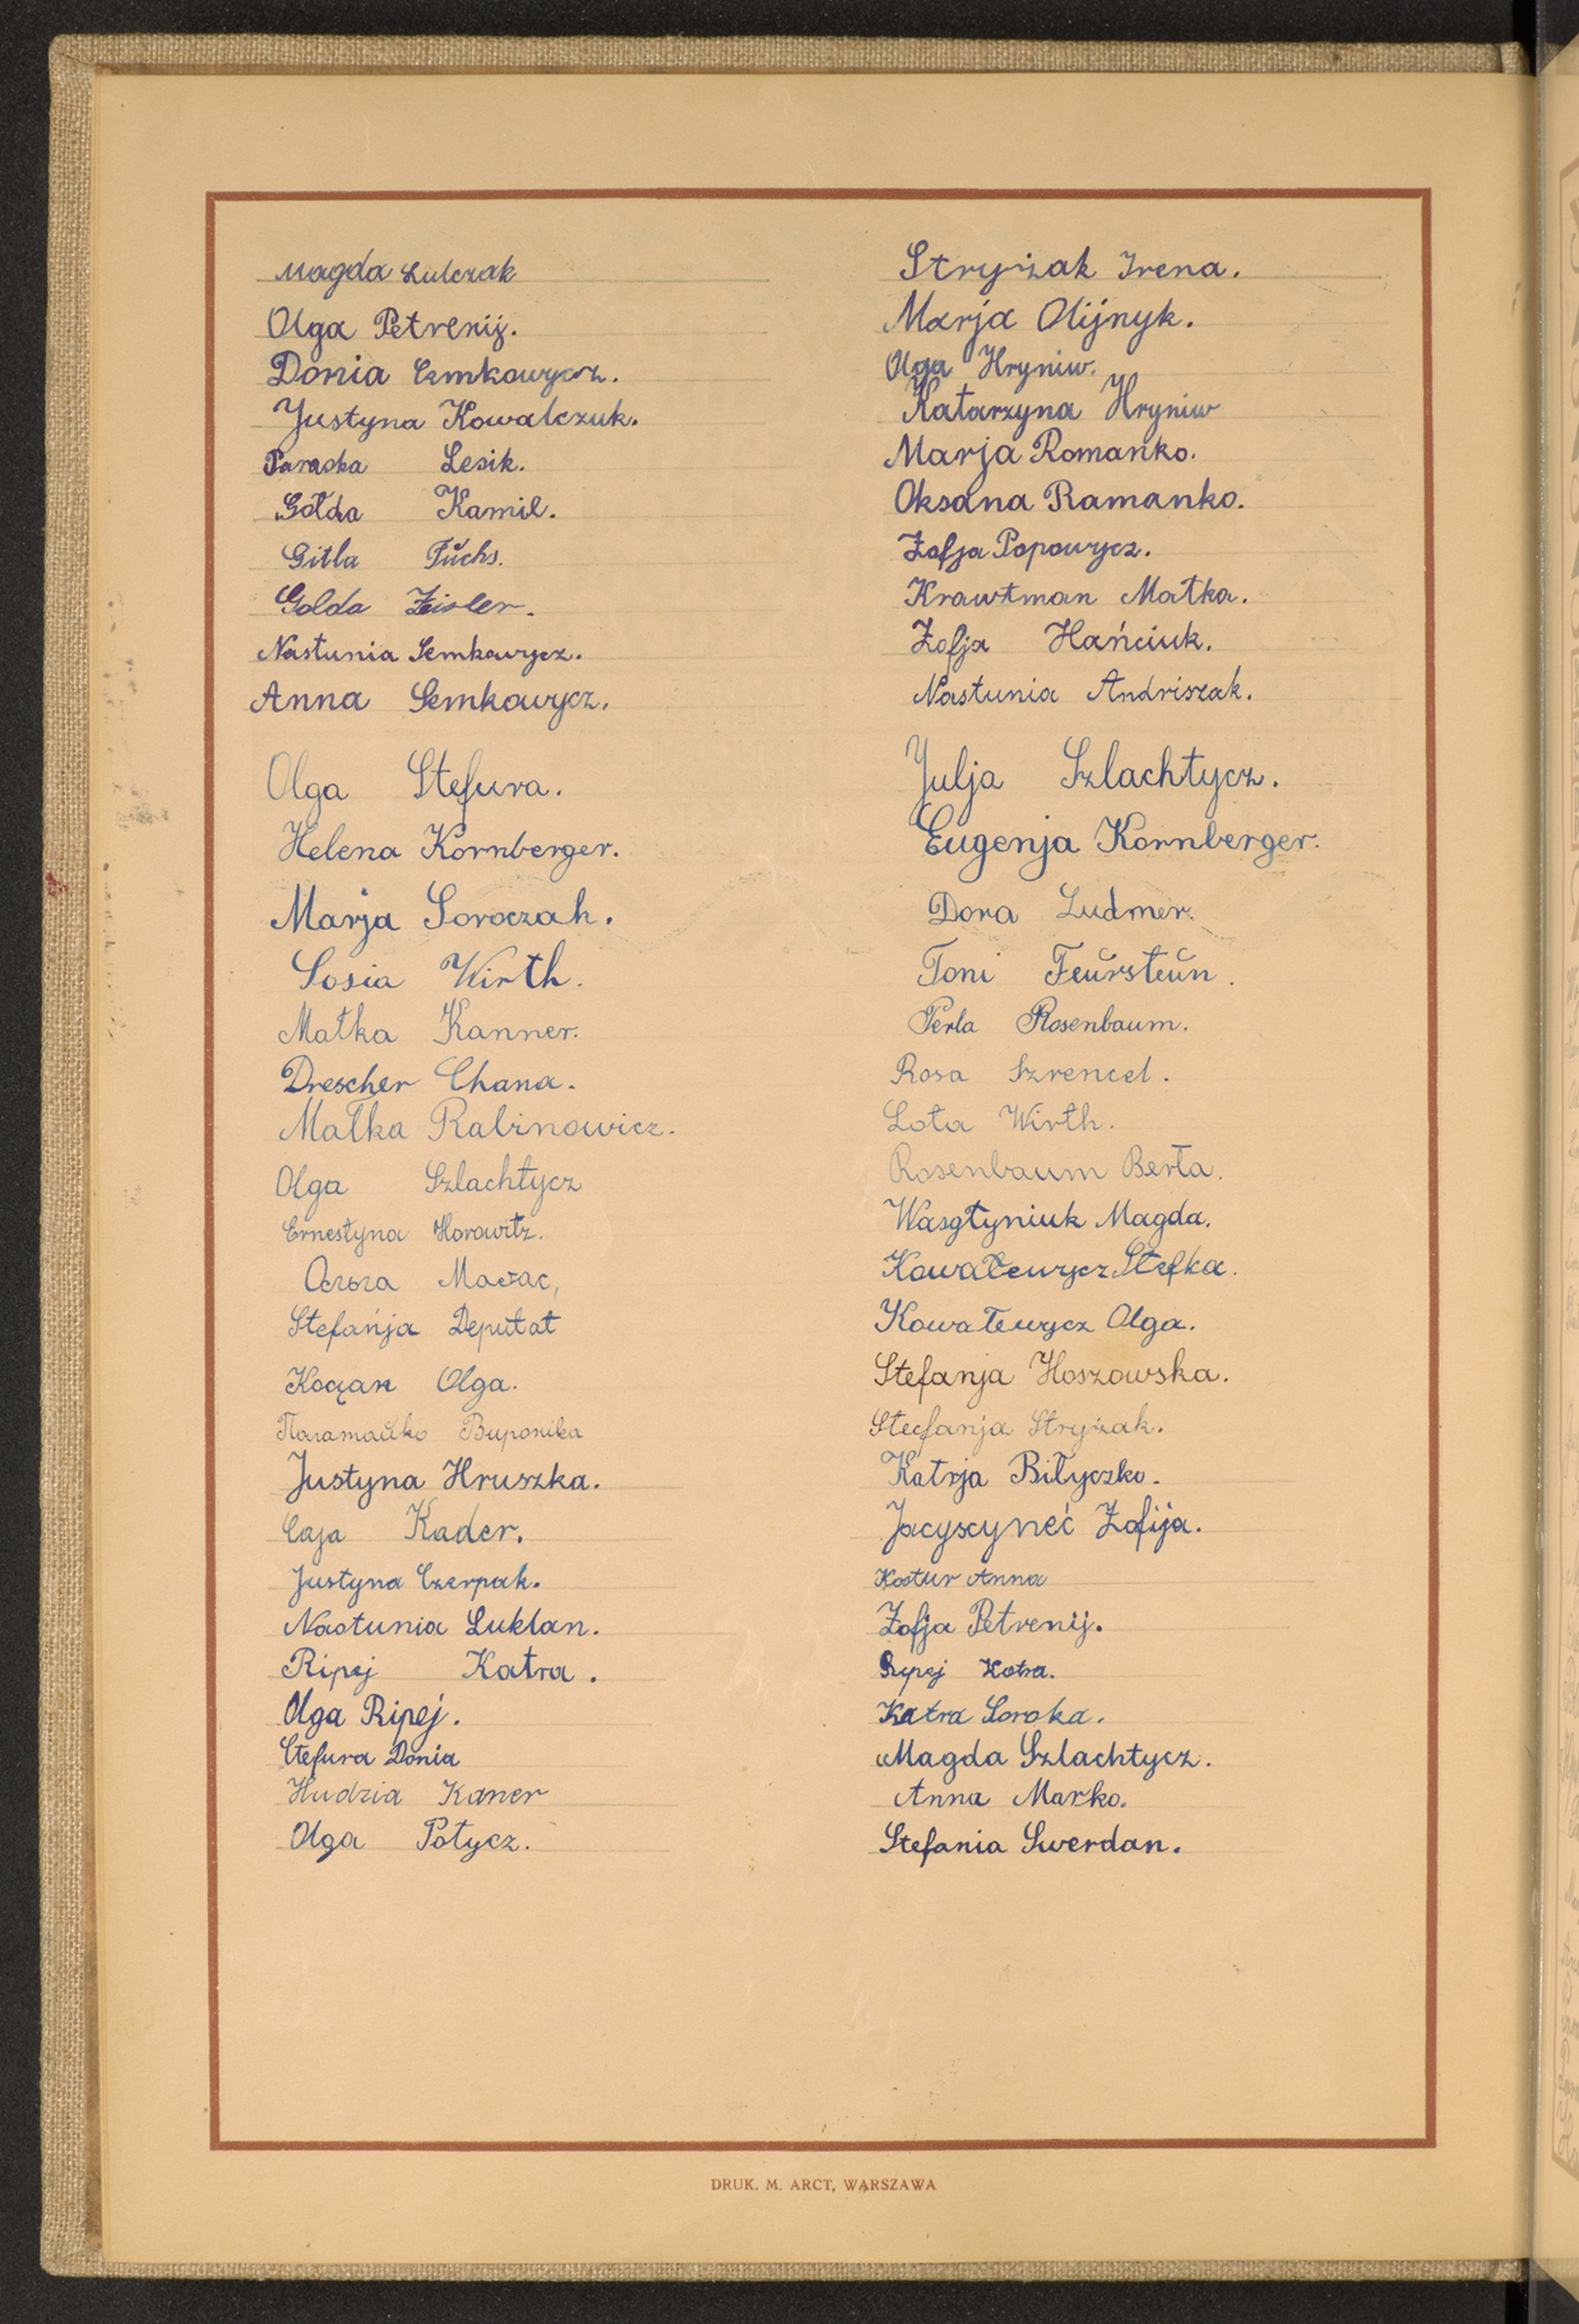 Magda Lulczak
Olga Petrenij.
Donia Semkowycz.
Justyna Kowalczuk.
Paraska Lesik.
Gołda Kamil.
Gitla Fŭchs.
Golda Zeisler.
Nastunia Semkowycz.
Anna Semkowycz.
Olga Stefura.
Helena Kornberger.
Marja Soroczak.
Sosia Wirth.
Małka Kanner.
Drescher Chana.
Małka Rabinowicz.
Olga Szlachtycz
Ernestyna Horowitz.
Stefańja Deputat
Koczan Olga.
Justyna Hruszka.
Caja Kader.
Justyna Czerpak.
Nastunia Luklan.
Ripej Katra.
Olga Ripej.
Stefura Donia
Hudzia Kaner
Olga Potycz.
Stryżak Irena.
Marja Olijnyk.
Olga Hryniw.
Katarzyna Hryniw
Marja Romanko.
Oksana Ramanko.
Zofja Popowycz.
Krawtman Małka.
Zofja Hańciuk.
Nastunia Andriszak.
Julja Szlachtycz.
Eugenja Kornberger.
Dora Ludmer.
Toni Feŭrsteŭn.
Perla Rosenbaum.
Rosa Szrencel.
Lota Wirth.
Rosenbaum Berta.
Wasgtyniuk Magda.
Kowalewycz Stefka.
Kowalewycz Olga.
Stefanja Hoszowska.
Stecfanja Stryżak.
Katrja Biłyczko.
Jacyscyneć Zofija.
Kostur Anna
Zofja Petrenij.
Rypej Kotra.
Katra Soroka.
Magda Szlachtycz.
Anna Marko.
Stefania Swerdan.
DRUK. M. ARCT, WARSZAWA